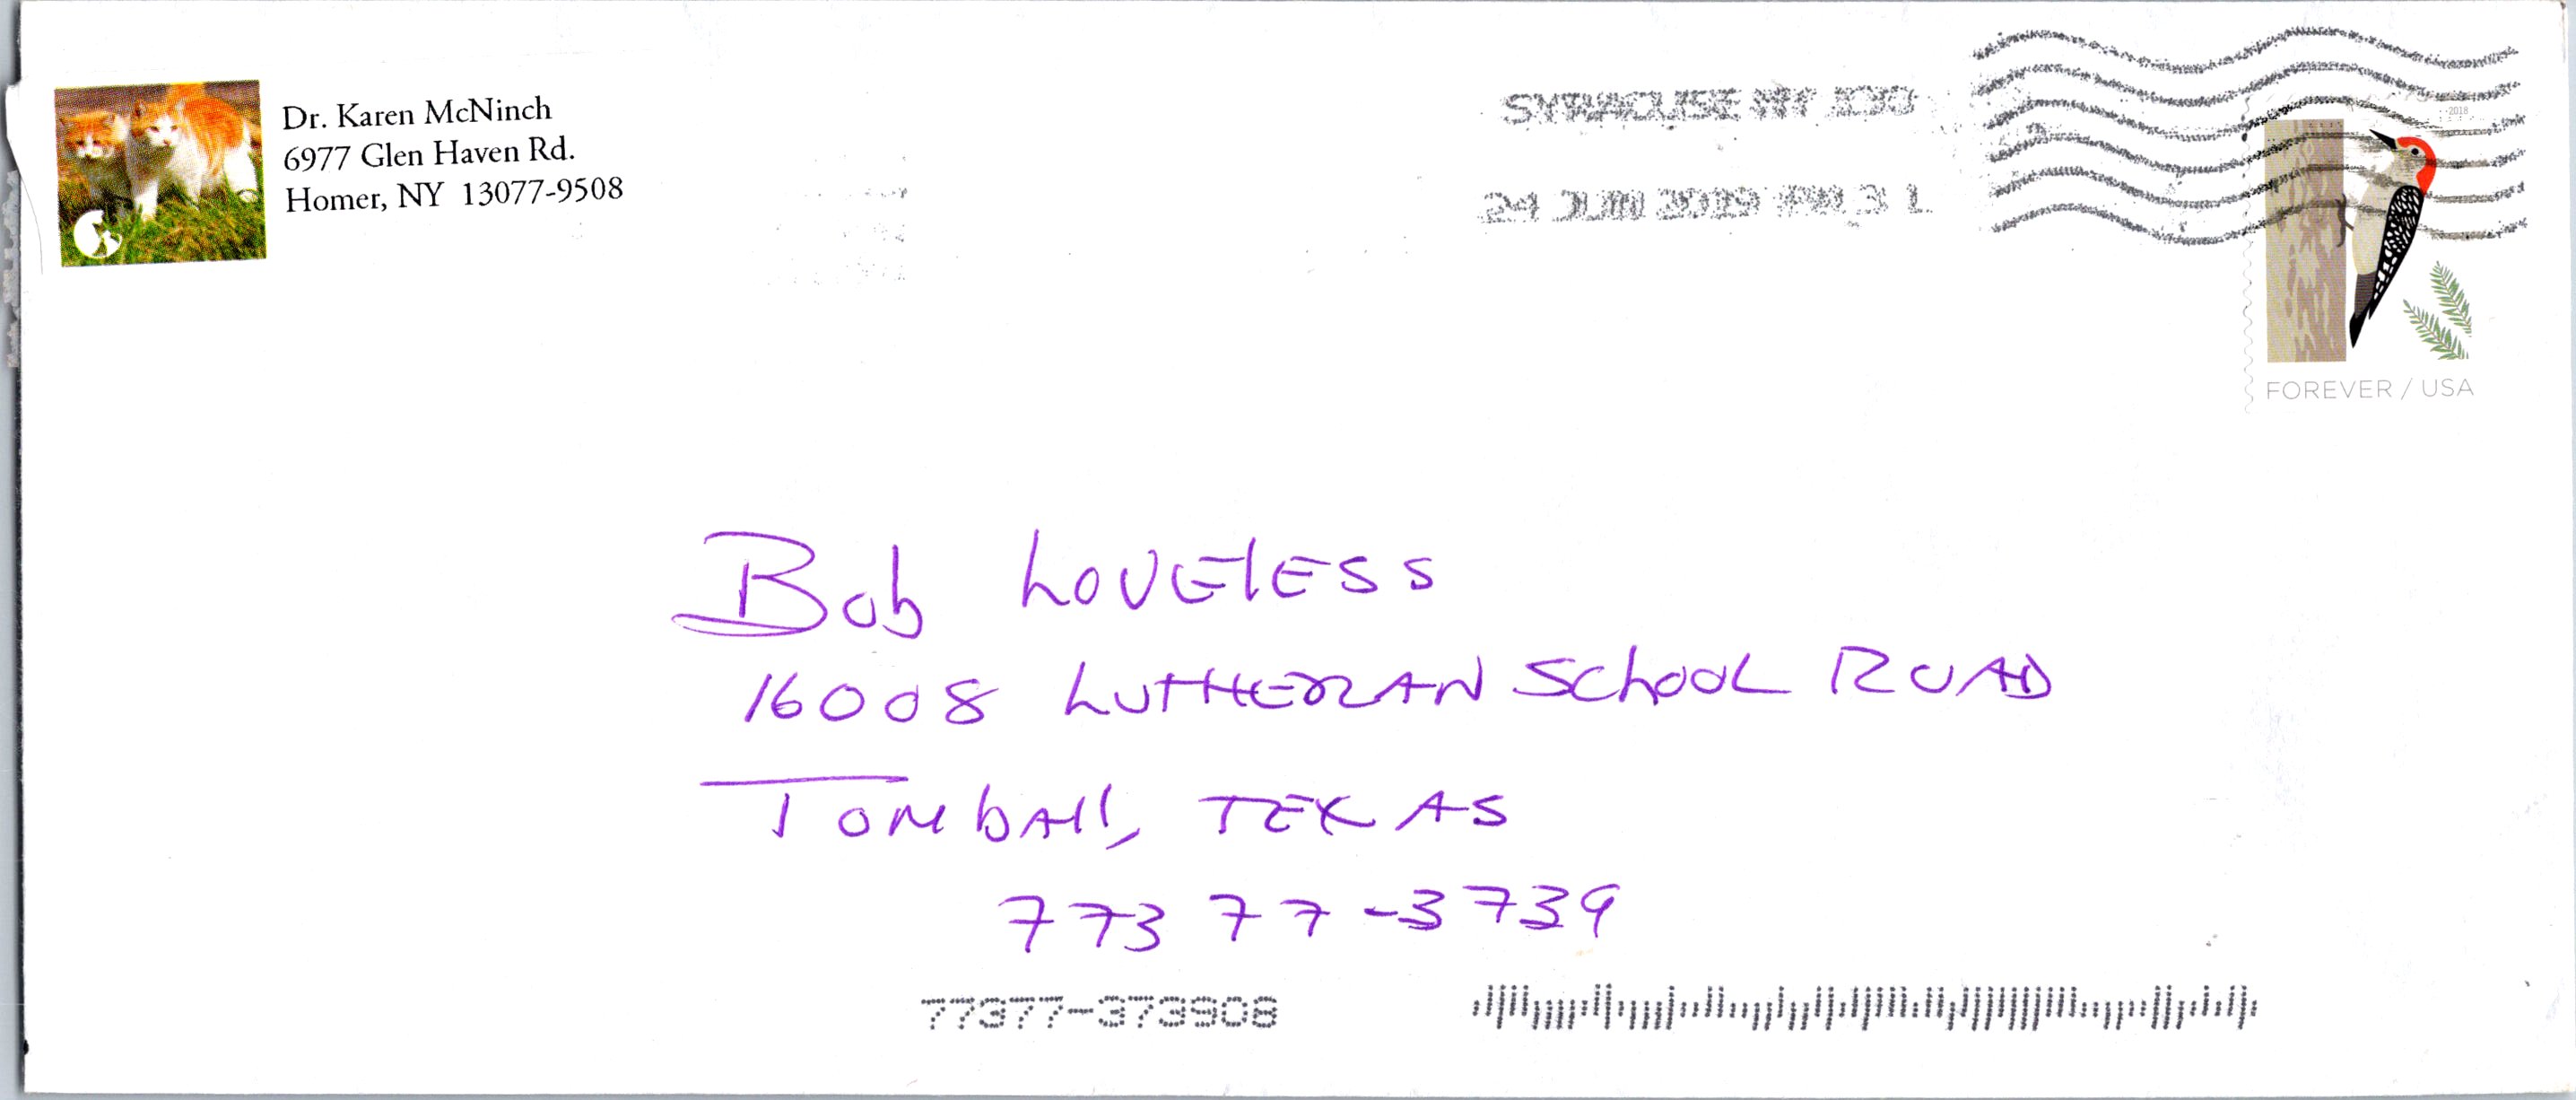 Dr. Karen McNinch
6977 Glen Haven Rd.
Homer, NY 13077-9508
SYRACUSE NY 130
24 JUN 2019 PM 3 L
2018
FOREVER / USA
Bob LOVELESS
16008 LUTHERAN SCHOOL ROAD
TOMBALL, TEXAS
77377-3739
77377-373908